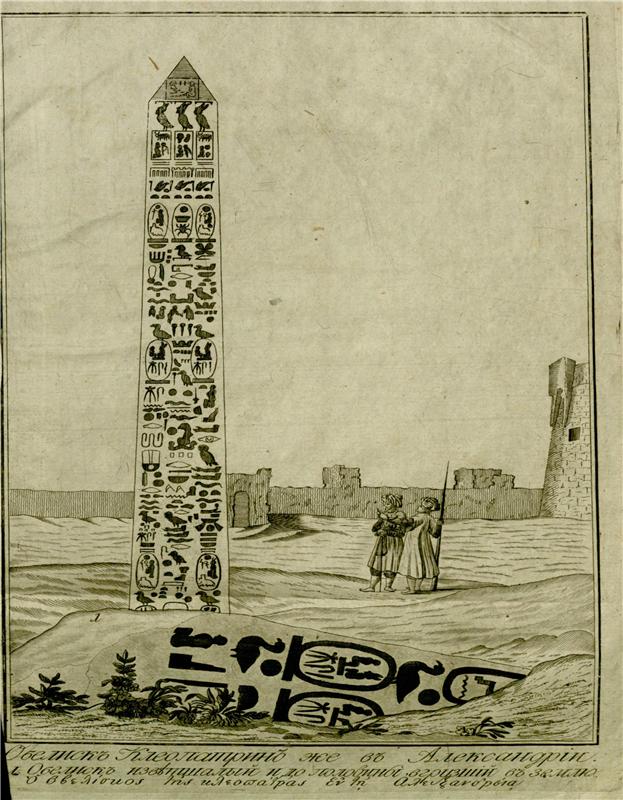 1
Обелискъ Клеопатринъ же въ Александріи.
1 Обелискъ изветшалый и до половины вгрузшій въ землю.
Ο Οβελισκος της κλεοπατρας Εν τη Αλεξανδρεια